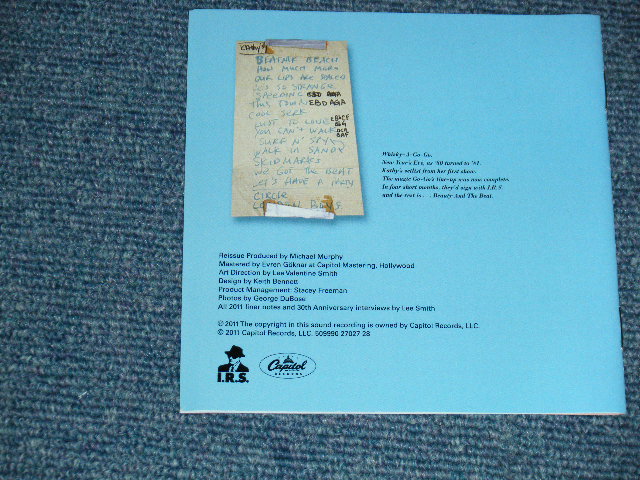 Kathy's
BEATNIK BEACH
HOW MUCH MORE
OUR LIPS ARE SEALED
LUST SO STRANGE
SPEEDING EBD AGA
THIS TOWN EBD AGA
COOL JERK
LUST TO LOVE
YOU CAN'T WALK
SURF N' SPY
WALK IN SAND
SKIDMARKS
WE GOT THE BEAT
LET'S HAVE A PARTY
Whisky-A-Go-Go.
New Year's Eve, as '80 turned to '81.
Kathy's setlist from her first show.
The magic Go-Go's line-up was now complete.
In four short months, they'd sign with I.R.S.
and the rest is . . . Beauty And The Beat.
Reissue Produced by Michael Murphy
Mastered by Evren Göknar at Capitol Mastering, Hollywood
Art Direction by Lee Valentine Smith
Design by Keith Bennett
Product Management: Stacey Freeman
Photos by George DuBose
All 2011 liner notes and 30th Anniversary interviews by Lee Smith
℗ 2011 The copyright in this sound recording is owned by Capitol Records, LLC.
© 2011 Capitol Records, LLC. 509990 27027 28
I.R.S.
Capitol
RECORDS